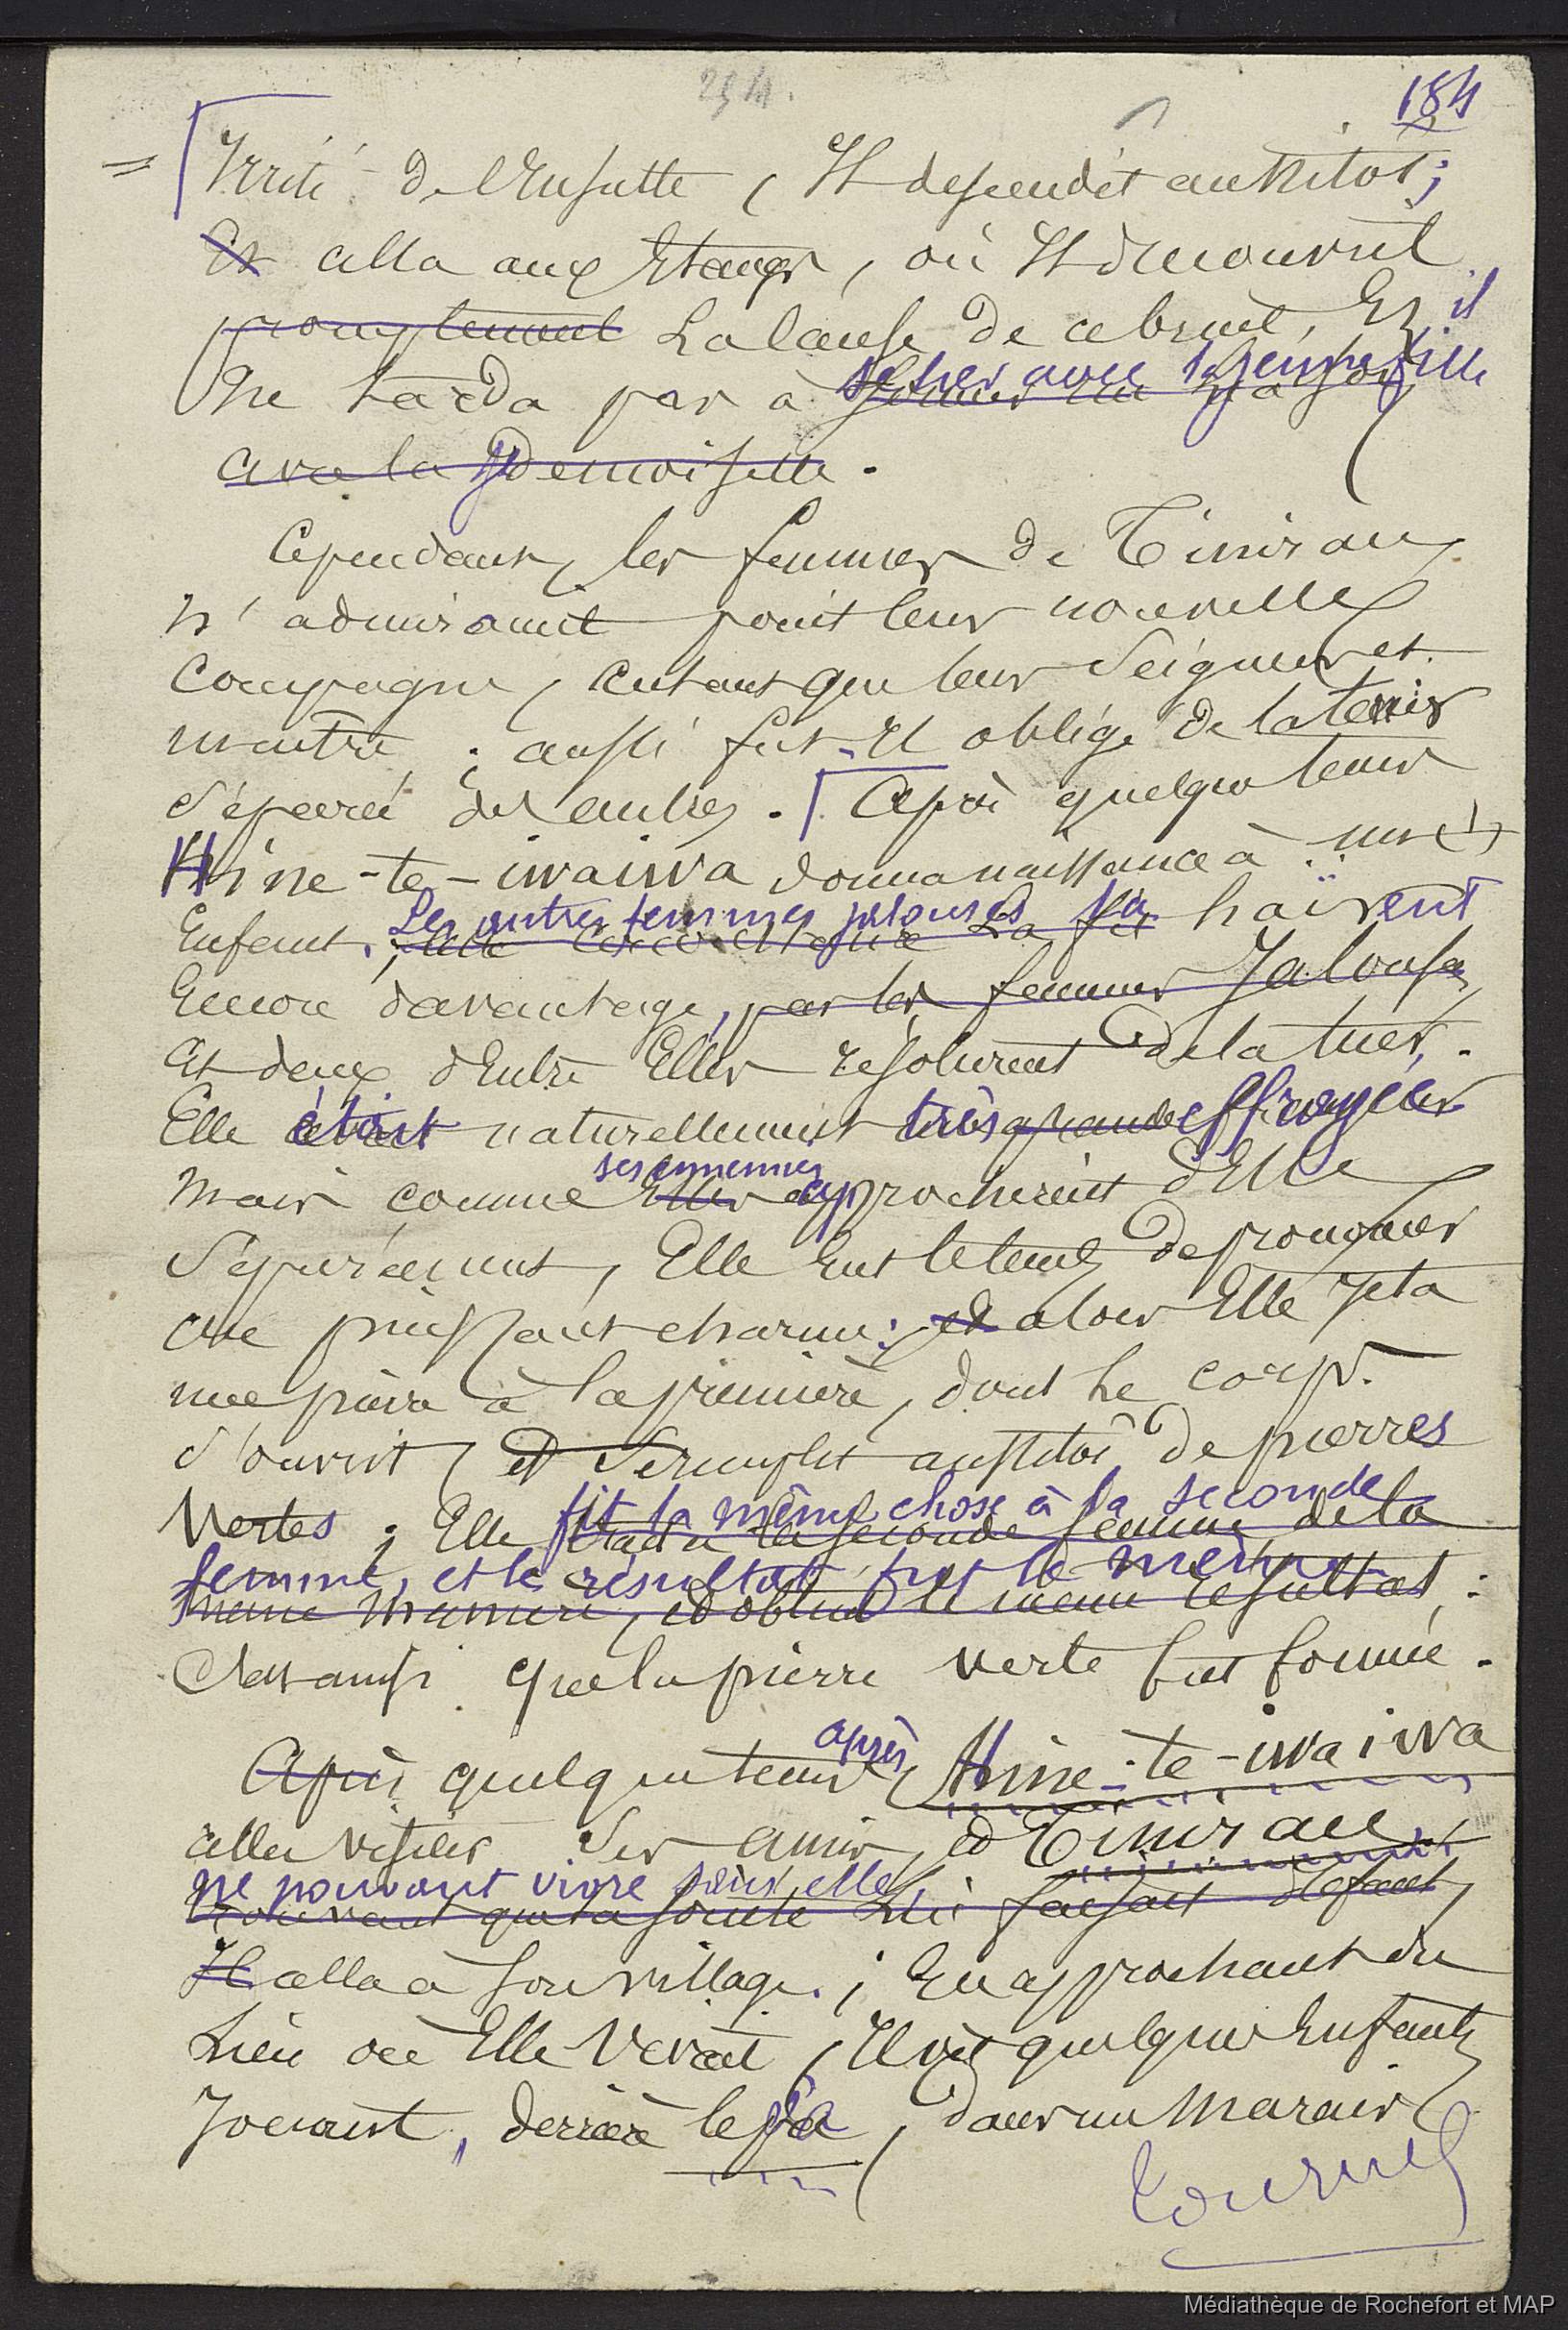 294.
184
= Irrité de l'Insulte, Il descendit aussitôt;
Et alla aux Etangs, où Il découvrit
promptement La Cause de ce bruit, Et il
Ne tarda pas à se lier avec la jeune fille
avec la Demoiselle.
Cependant, les femmes de Tinirau
n'admiraient point leur nouvelle
Compagne, autant que leur Seigneur et
maître; aussi fut-Il obligé de la tenir
Séparée des autres. Après quelque tems
Hine-te-iwaiwa donna naissance à un
Enfant. Les autres femmes jalouses la haïrent
Encore davantage, par les femmes Jalouses,
Et deux d'Entre Elles résolurent de la tuer.
Elle était naturellement très grande effrayée
Mais comme ses ennemies Elles approchèrent d'Elle
Séparément, Elle Eut le tems de prononcer
Un puissant charme; et alors Elle Jeta
une pierre à la première, dont Le corps
S'ouvrit, et Se remplit aussitôt de pierres
Vertes; Elle fit la même chose à la seconde
traita la seconde femme de la
femme, et le résultat fut le même.
même manière, et obtint le même résultat:
C'est ainsi que la pierre verte fut formée.
Après quelque tems après, Hine-te-iwaiwa
alla visiter Ses amis, et Tinirau
ne pouvant vivre sans elle,
trouvant que sa société Lui faisait défaut,
Il alla à Son village.; En approchant du
Lieu où Elle vivait, Il vit quelques Enfants
Jouant, derrière le pa, dans un Marais
Tournez
Médiathèque de Rochefort et MAP